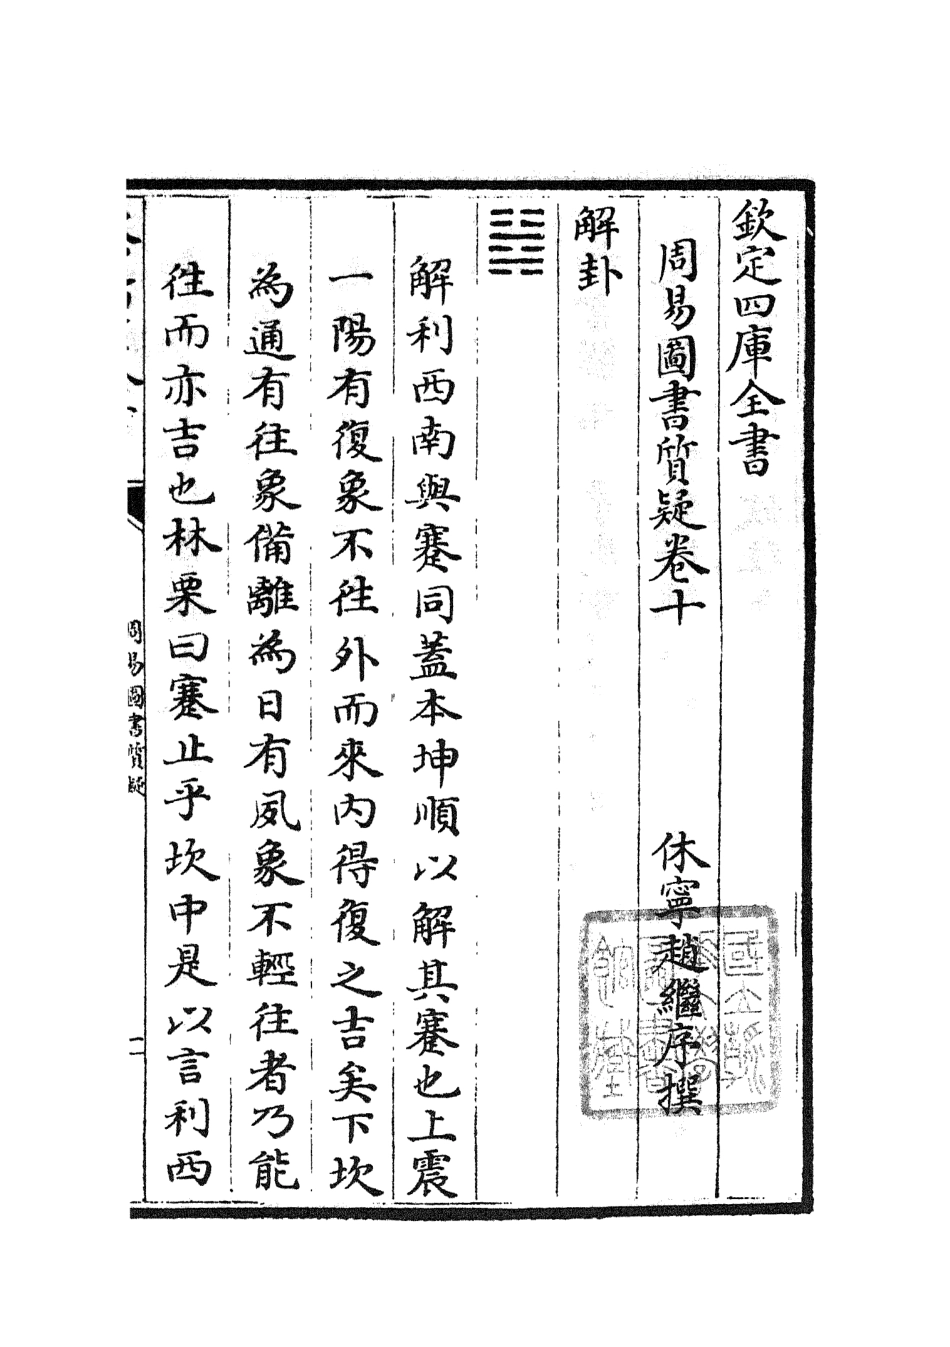 欽定四庫全書
周易圖書質疑卷十
休寧趙繼序撰
解卦
䷧
解利西南與蹇同蓋本坤順以解其蹇也上震
一陽有復象不徃外而來内得復之吉矣下坎
為通有往象備離為日有夙象不輕往者乃能
徃而亦吉也林栗曰蹇止乎坎中是以言利西
周易圖書質疑